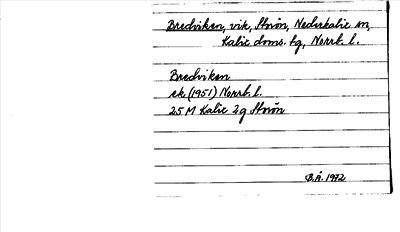 Bredviken, vik, Storön, Nederkalix sn,
Kalix doms. tg, Norrb. l.
Bredviken
ek (1951) Norrb. l.
25 M Kalix 2g Storön
B.Å. 1972